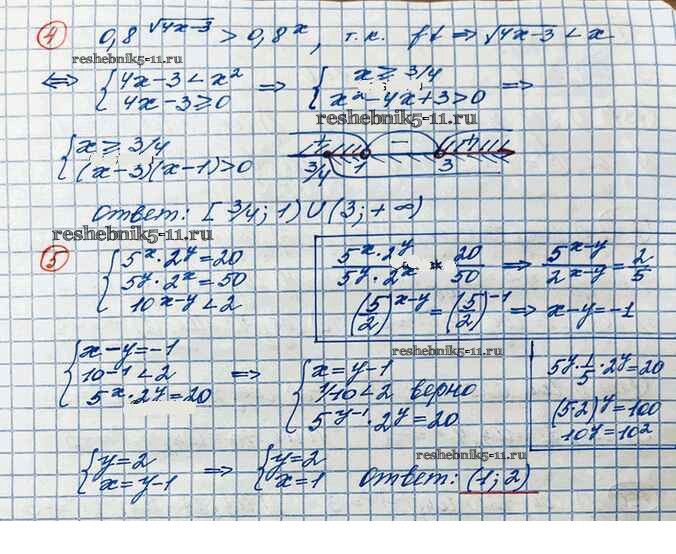 ④ 0,8^√(4x-3) > 0,8^x, т.к. f↓ ⇒ √(4x-3) < x
reshebnik5-11.ru
⇔ { 4x-3 < x² ⇒ { x ≥ 3/4 ⇒
4x-3 ≥ 0 x²-4x+3 > 0
reshebnik5-11.ru
{ x ≥ 3/4 + - +
(x-3)(x-1) > 0 3/4 1 3
Ответ: [3/4; 1) ∪ (3; +∞)
reshebnik5-11.ru
⑤ { 5^x · 2^y = 20
5^y · 2^x = 50
10^(x-y) < 2
(5^x · 2^y)/(5^y · 2^x) = 20/50 ⇒ 5^(x-y)/2^(x-y) = 2/5
(5/2)^(x-y) = (5/2)^(-1) ⇒ x-y = -1
reshebnik5-11.ru
{ x-y = -1
10^(-1) < 2 ⇒
5^x · 2^y = 20
{ x = y-1
1/10 < 2 верно
5^(y-1) · 2^y = 20
5^y · 1/5 · 2^y = 20
(5·2)^y = 100
10^y = 10²
reshebnik5-11.ru
{ y = 2 ⇒ { y = 2 Ответ: (1; 2)
x = y-1 x = 1